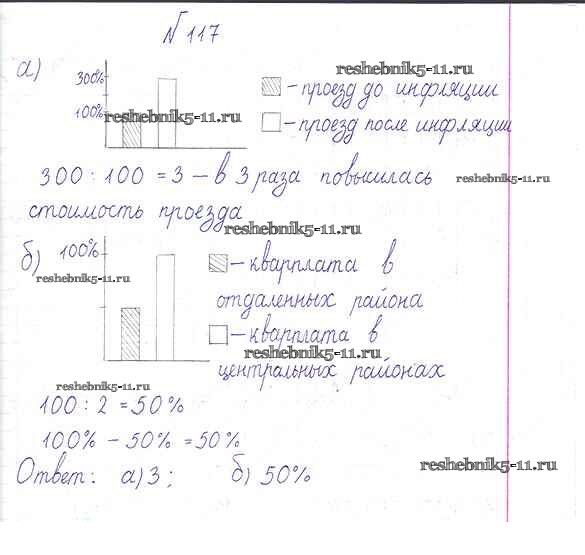 №117
а)
reshebnik5-11.ru
300%
– проезд до инфляции
100%
reshebnik5-11.ru
– проезд после инфляции
300 : 100 = 3 – в 3 раза повысилась
reshebnik5-11.ru
стоимость проезда
reshebnik5-11.ru
б)
100%
– кварплата в
reshebnik5-11.ru
отдаленных района
– кварплата в
reshebnik5-11.ru
центральных районах
reshebnik5-11.ru
100 : 2 = 50%
100% – 50% = 50%
reshebnik5-11.ru
Ответ: а) 3; б) 50%